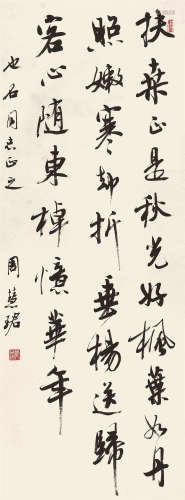 扶桑正是秋光好楓葉如丹
照嫩寒却折垂楊送歸
客心随東棹憶華年
也石同志正之
周慧珺